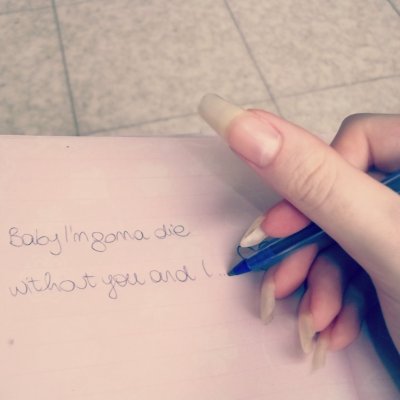 Baby I'm gonna die
without you and I...